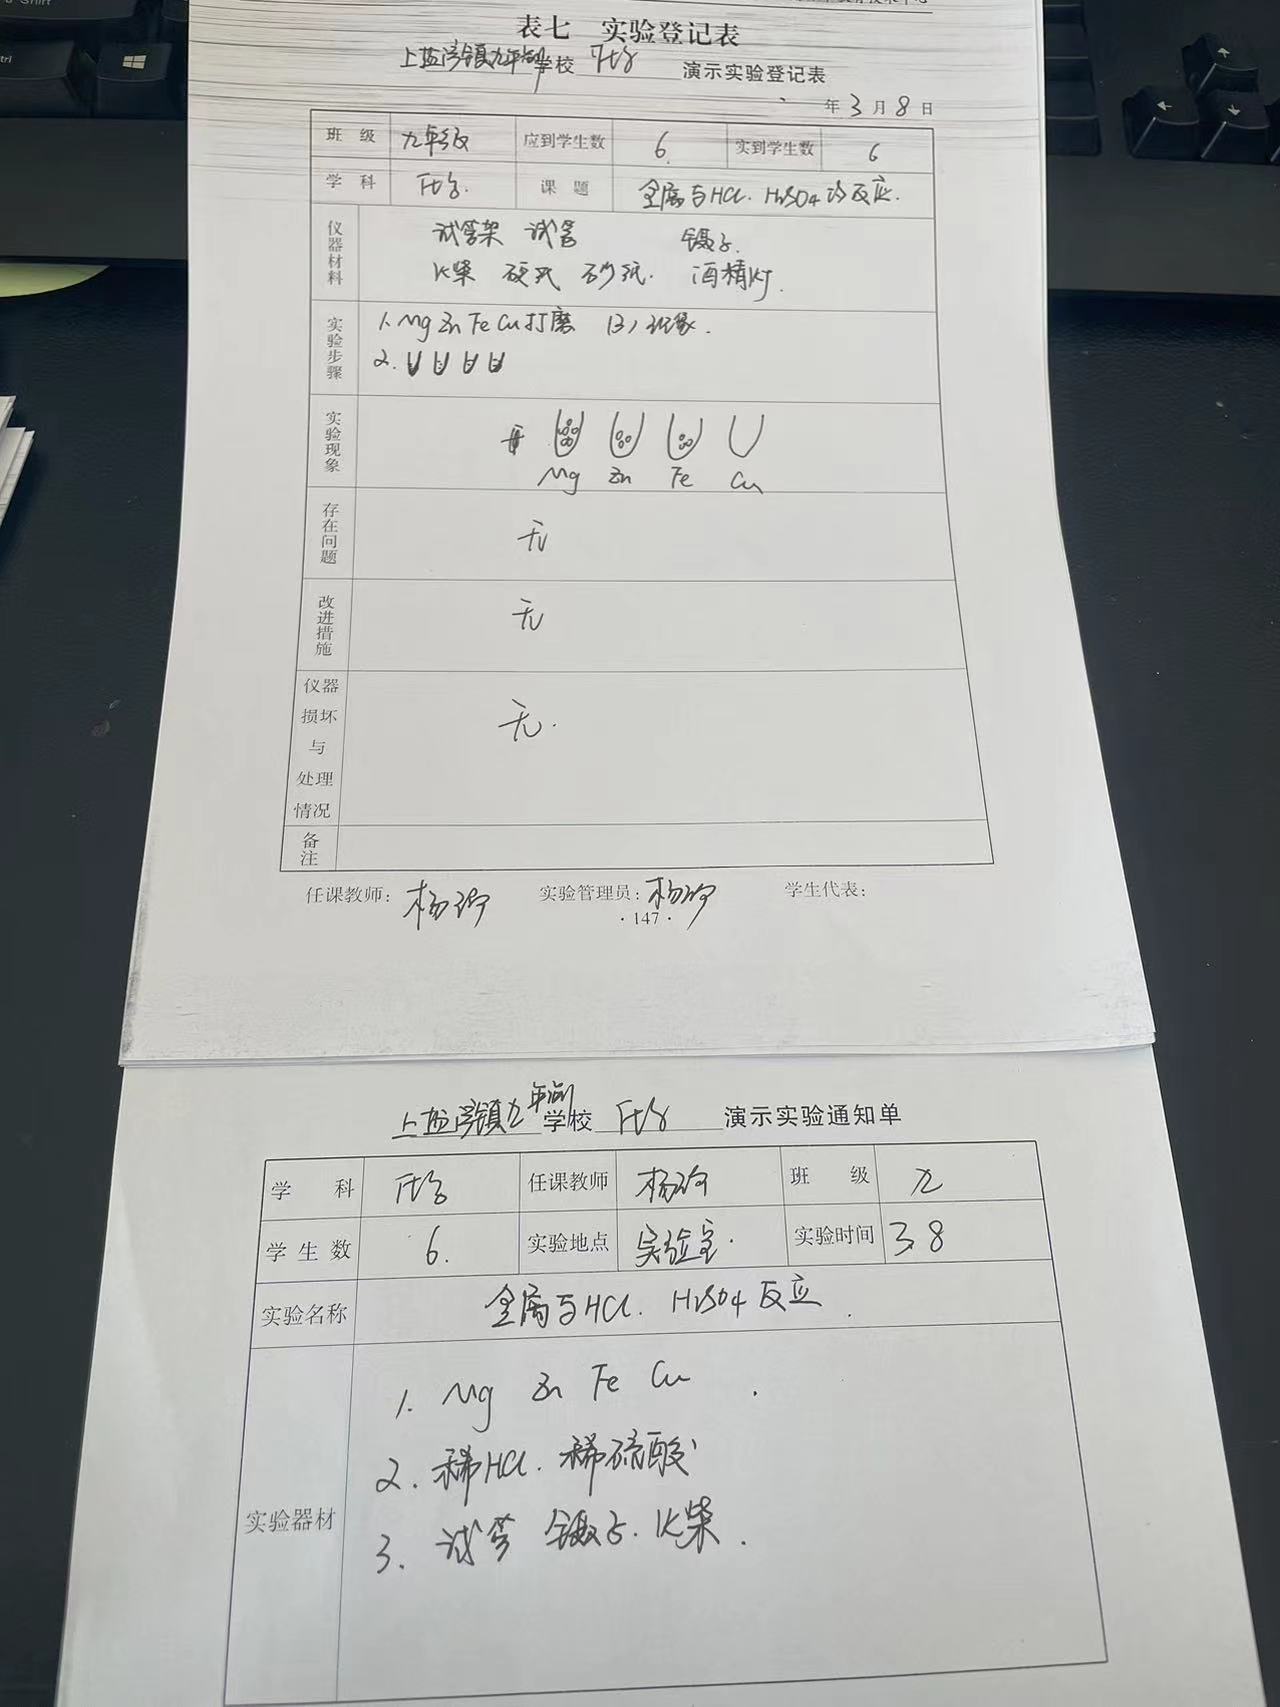 Shift
表七 实验登记表
上盐湾镇九年制学校 化学 演示实验登记表
年 3 月 8 日
班 级 九年级 应到学生数 6 实到学生数 6
学 科 化学 课 题 金属与HCl. H₂SO₄的反应.
仪器材料 试管架 试管 镊子.
火柴 硬纸 砂纸. 酒精灯.
实验步骤 1. Mg Zn Fe Cu打磨
2.
实验现象
Mg Zn Fe Cu
存在问题 无
改进措施 无
仪器损坏与处理情况 无.
备注
任课教师: 杨 实验管理员: 杨 学生代表:
·147·
上盐湾镇九年制学校 化学 演示实验通知单
学 科 化学 任课教师 杨 班 级 九
学 生 数 6. 实验地点 实验室. 实验时间 3.8
实验名称 金属与HCl. H₂SO₄反应.
实验器材 1. Mg Zn Fe Cu.
2. 稀HCl. 稀硫酸
3. 试管 镊子. 火柴.